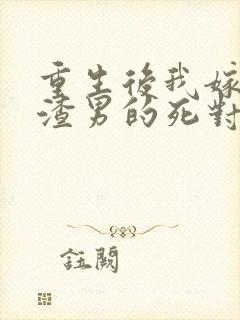 重生後我嫁
渣男的死對
鈺闕